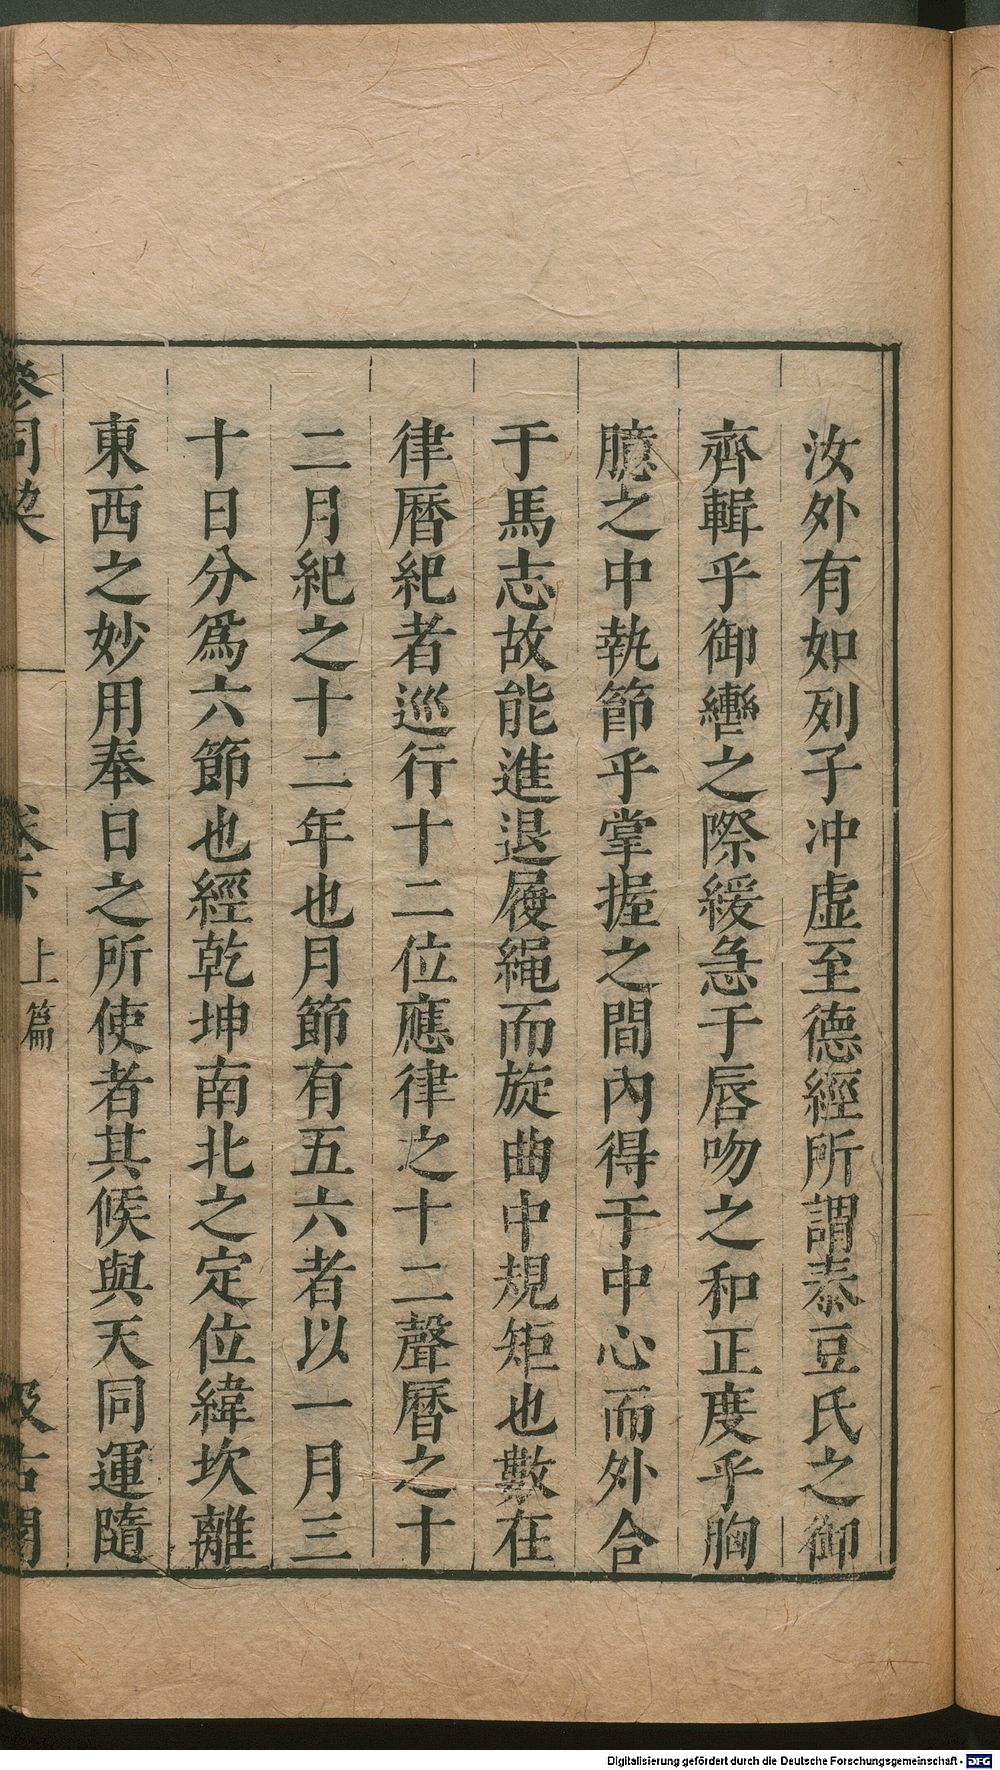 汝外有如列子冲虛至德經所謂泰豆氏之御
齊輯乎御轡之際緩急于唇吻之和正度乎胸
臆之中執節乎掌握之間內得于中心而外合
于馬志故能進退履繩而旋曲中規矩也數在
律曆紀者巡行十二位應律之十二聲曆之十
二月紀之十二年也月節有五六者以一月三
十日分爲六節也經乾坤南北之定位緯坎離
東西之妙用奉日之所使者其候與天同運隨
參同契 卷下 上篇 汲古閣
Digitalisierung gefördert durch die Deutsche Forschungsgemeinschaft - DFG